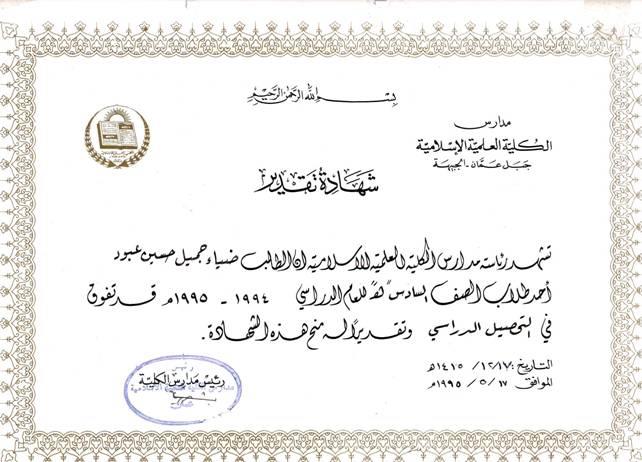 بسم الله الرحمن الرحيم
مدارس
الكلية العلمية الإسلامية
جبل عمّان - الجبيهة
شهادة تقدير
تشهد رئاسة مدارس الكلية العلمية الاسلامية ان الطالب ضياء جميل حسين عبود
أحد طلاب الصف السادس للعام الدراسي ١٩٩٤ - ١٩٩٥م قد تفوق
في التحصيل الدراسي وتقديراً له منح هذه الشهادة.
التاريخ: ١٢/١٧/ ١٤١٥هـ
الموافق ١٧ /٥ /١٩٩٥م
رئيس مدارس الكلية